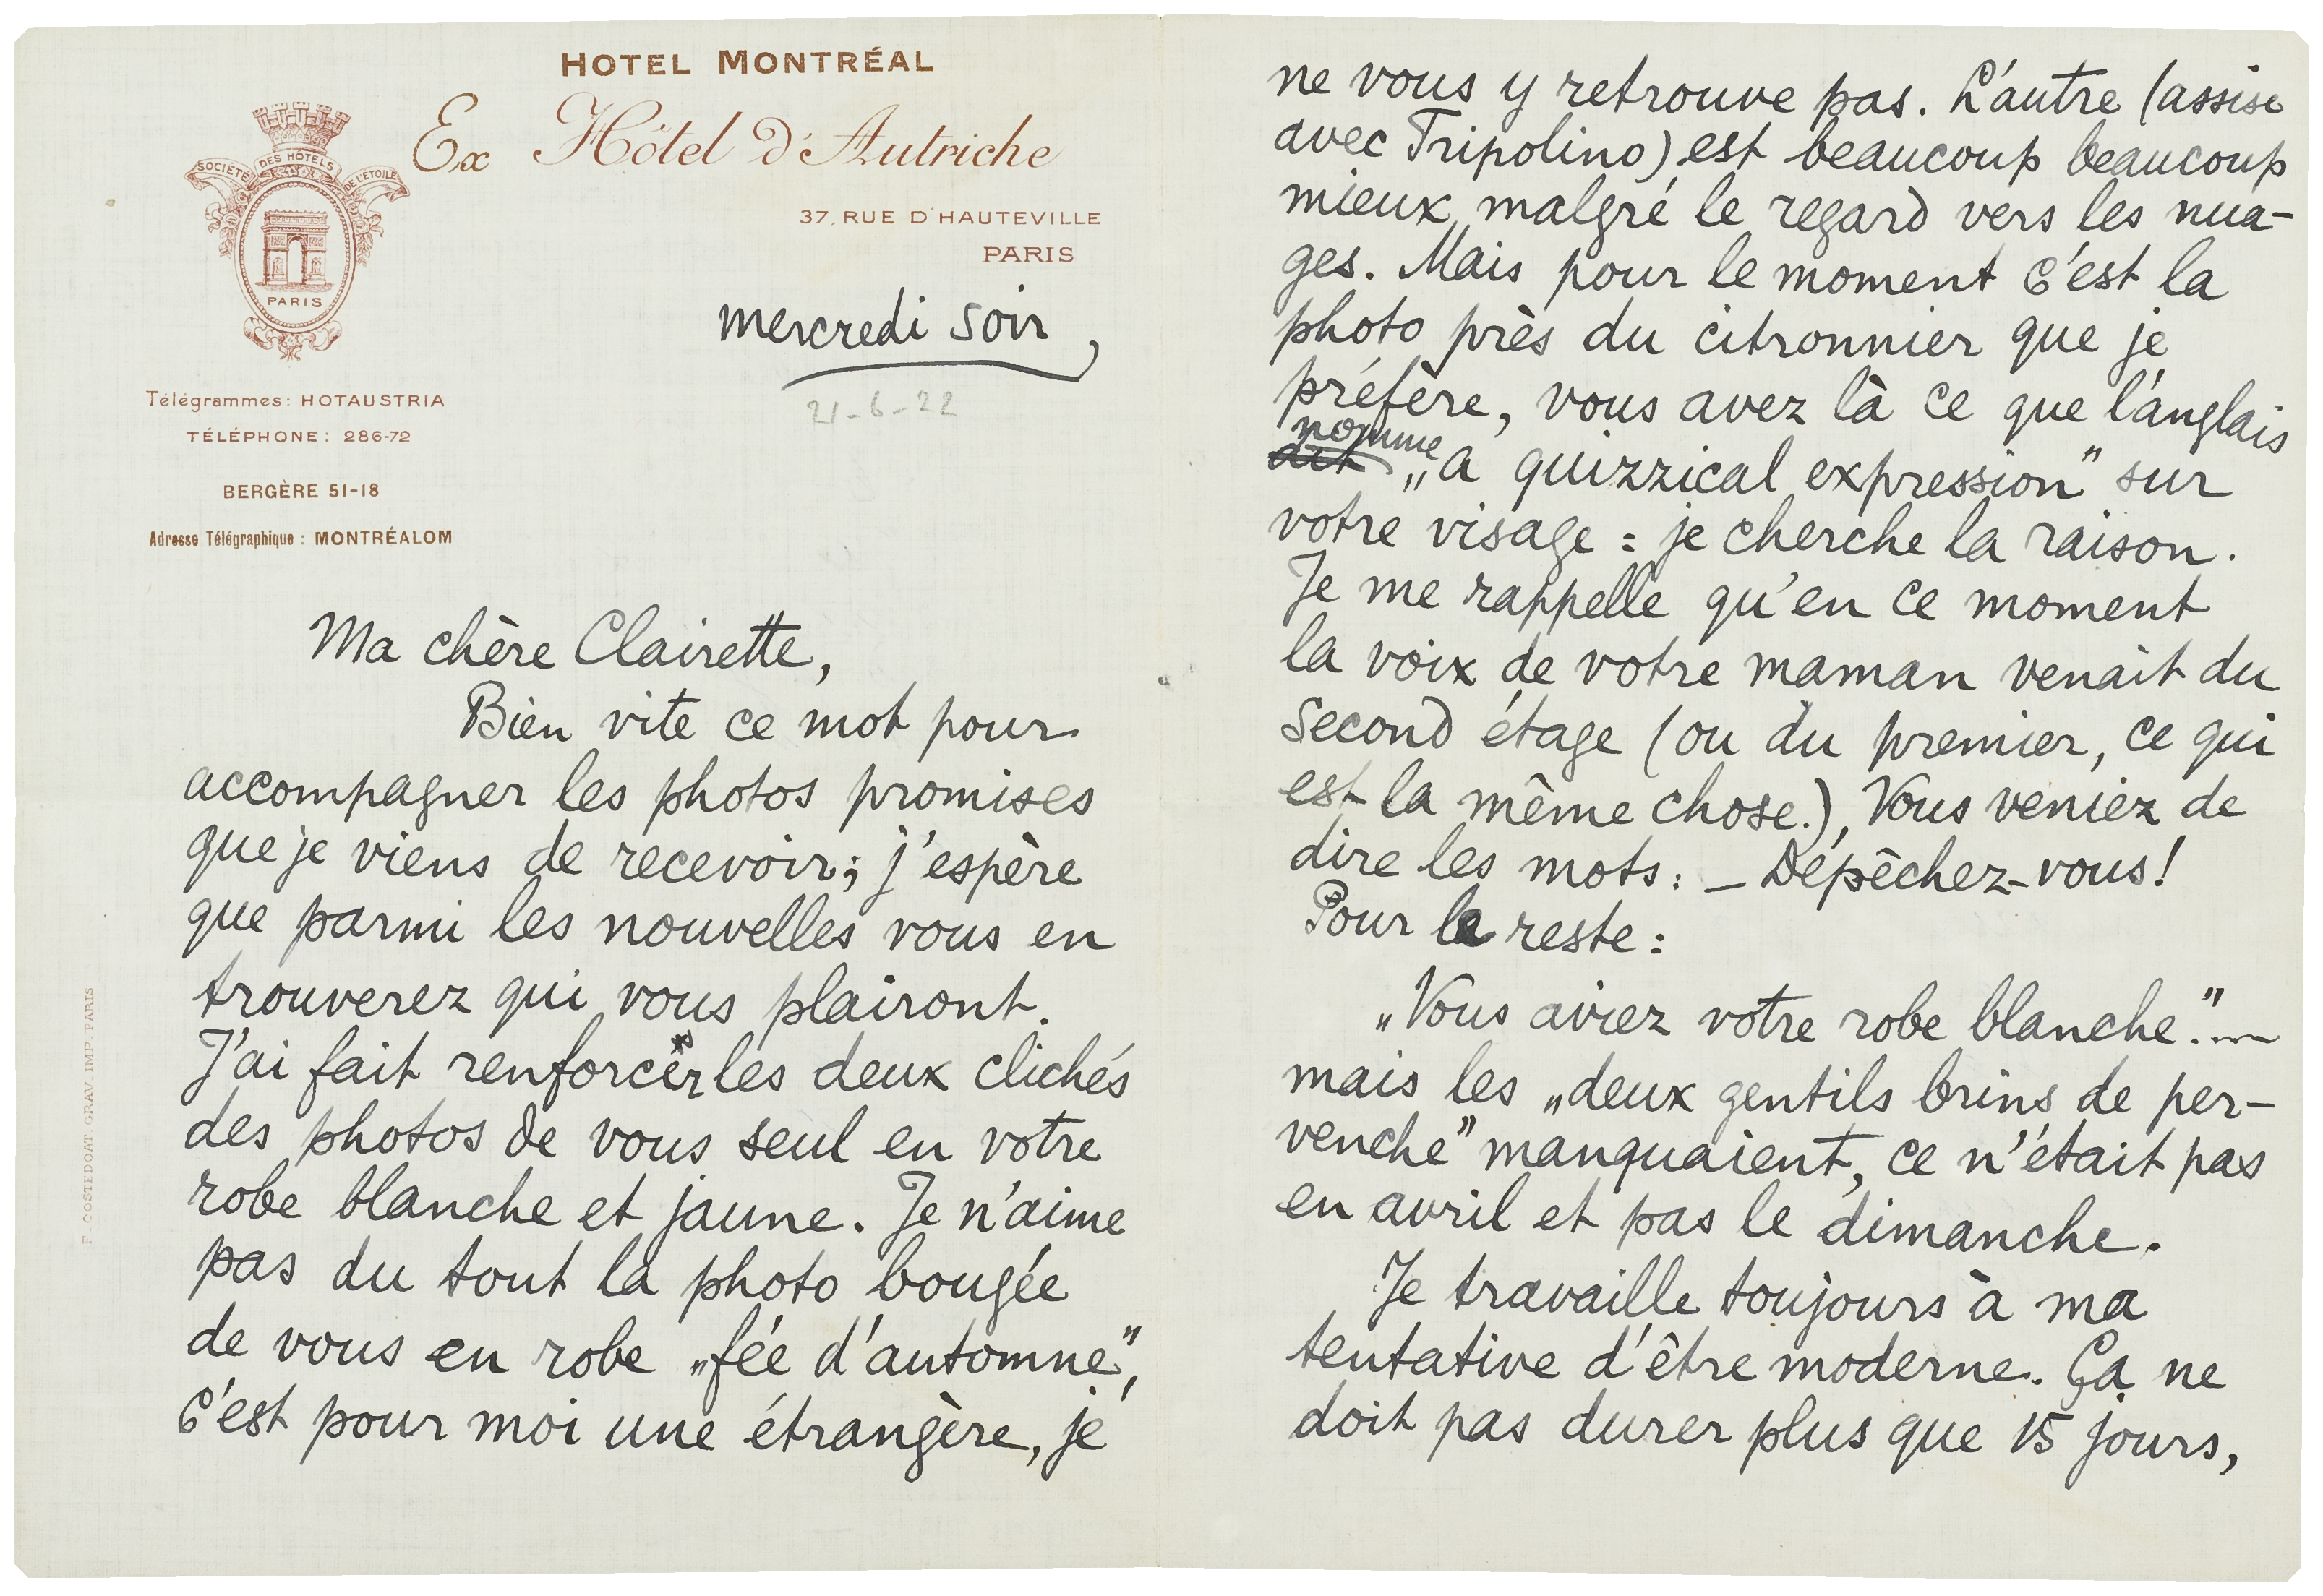 HOTEL MONTRÉAL
Ex Hôtel d'Autriche
37, RUE D'HAUTEVILLE
PARIS
SOCIÉTÉ DES HÔTELS DE L'ÉTOILE
PARIS
mercredi soir,
21-6-22
Télégrammes: HOTAUSTRIA
TÉLÉPHONE: 286-72
BERGÈRE 51-18
Adresse Télégraphique : MONTRÉALOM
F. COSTEDOAT GRAV. IMP. PARIS
Ma chère Clairette,
Bien vite ce mot pour
accompagner les photos promises
que je viens de recevoir; j'espère
que parmi les nouvelles vous en
trouverez qui vous plairont.
J'ai fait renforcer les deux clichés
des photos de vous seul en votre
robe blanche et jaune. Je n'aime
pas du tout la photo bougée
de vous en robe „fée d'automne",
c'est pour moi une étrangère, je
ne vous y retrouve pas. L'autre (assise
avec Tripolino) est beaucoup beaucoup
mieux malgré le regard vers les nua-
ges. Mais pour le moment c'est la
photo près du citronnier que je
préfère, vous avez là ce que l'anglais
dit nomme „a quizzical expression" sur
votre visage : je cherche la raison.
Je me rappelle qu'en ce moment
la voix de votre maman venait du
second étage (ou du premier, ce qui
est la même chose.), Vous veniez de
dire les mots: — Dépêchez-vous!
Pour le reste:
„Vous aviez votre robe blanche."...
mais les „deux gentils brins de per-
venche" manquaient, ce n'était pas
en avril et pas le dimanche.
Je travaille toujours à ma
tentative d'être moderne. Ça ne
doit pas durer plus que 15 jours,